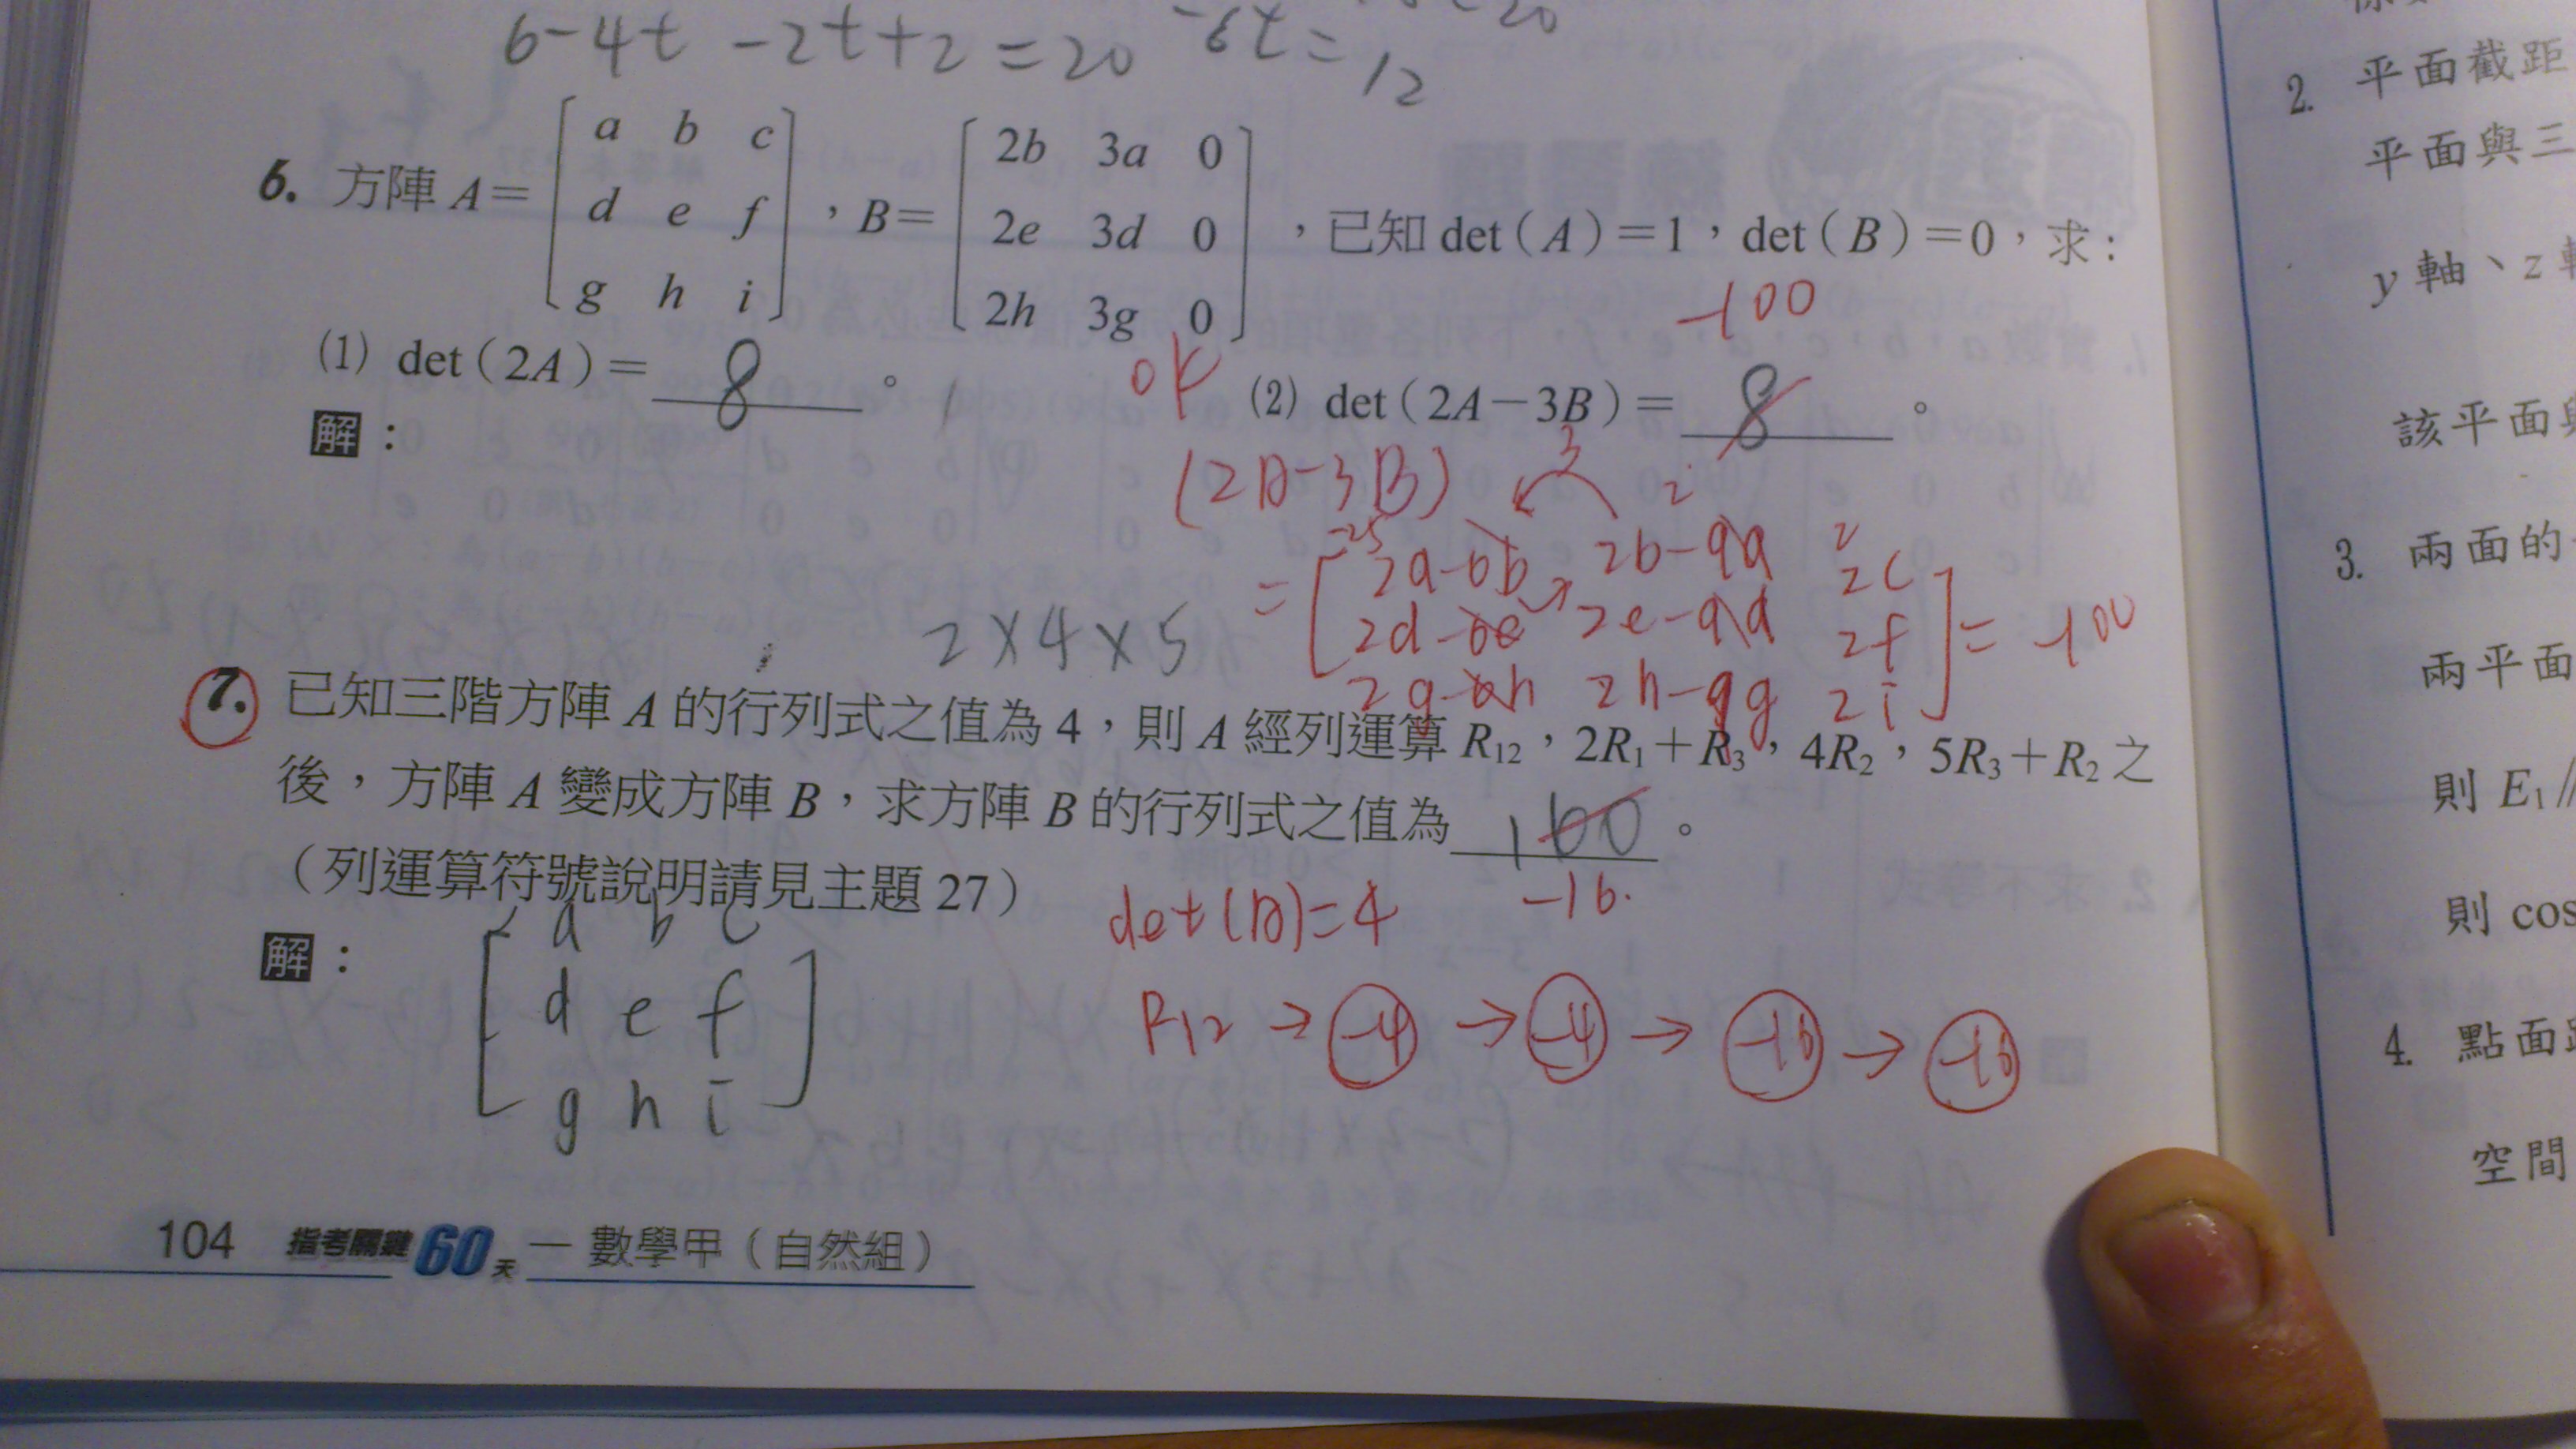 6-4t-2t+2=20 -6t=12
6. 方陣 A= [ a b c
d e f
g h i ] ,B= [ 2b 3a 0
2e 3d 0
2h 3g 0 ] ,已知 det(A)=1,det(B)=0,求:
-100
(1) det(2A)= 8 。 ok (2) det(2A-3B)= 8 。
解:
(2A-3B) 3
= [ 2a-6b 2b-9a 2c
2d-6e 2e-9d 2f
2g-6h 2h-9g 2i ] = -100
2×4×5
7. 已知三階方陣 A 的行列式之值為 4,則 A 經列運算 R12,2R1+R3,4R2,5R3+R2 之
後,方陣 A 變成方陣 B,求方陣 B 的行列式之值為 160 。
-16.
(列運算符號說明請見主題 27)
det(A)=4
解:
[ a b c
d e f
g h i ]
R12 → -4 → -4 → -16 → -16
104 指考關鍵60天 — 數學甲(自然組)
2. 平面截距
平面與三
y 軸、z
該平面
3. 兩面的
兩平面
則 E1//
則 cos
4. 點面
空間